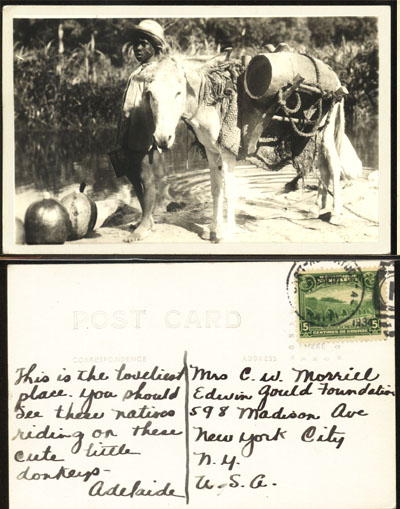 POST CARD
CORRESPONDENCE
ADDRESS
This is the loveliest
place. You should
see these natives
riding on these
cute little
donkeys-
Adelaide
Mrs C. W. Morrill
Edwin Gould Foundation
598 Madison Ave
New York City
N.Y.
U.S.A.
5
CENTIMES DE GOURDE
5